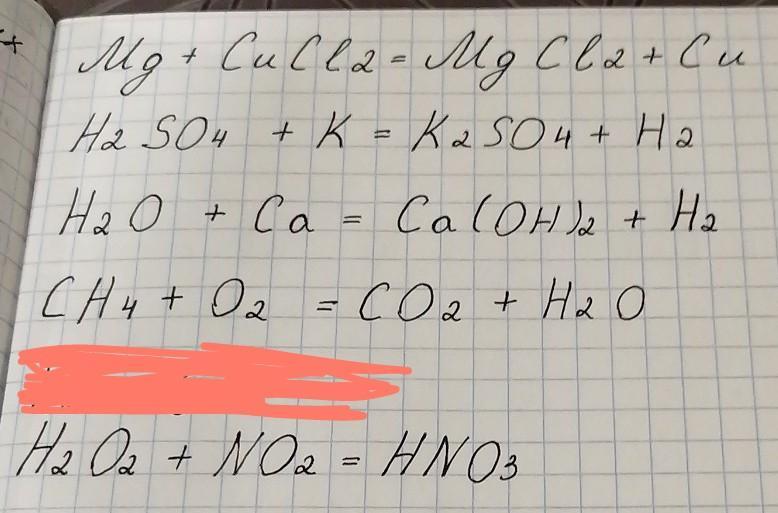 Mg + CuCl2 = MgCl2 + Cu
H2SO4 + K = K2SO4 + H2
H2O + Ca = Ca(OH)2 + H2
CH4 + O2 = CO2 + H2O
H2O2 + NO2 = HNO3